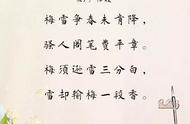 梅雪争春未肯降，
骚人阁笔费平章。
梅须逊雪三分白，
雪却输梅一段香。